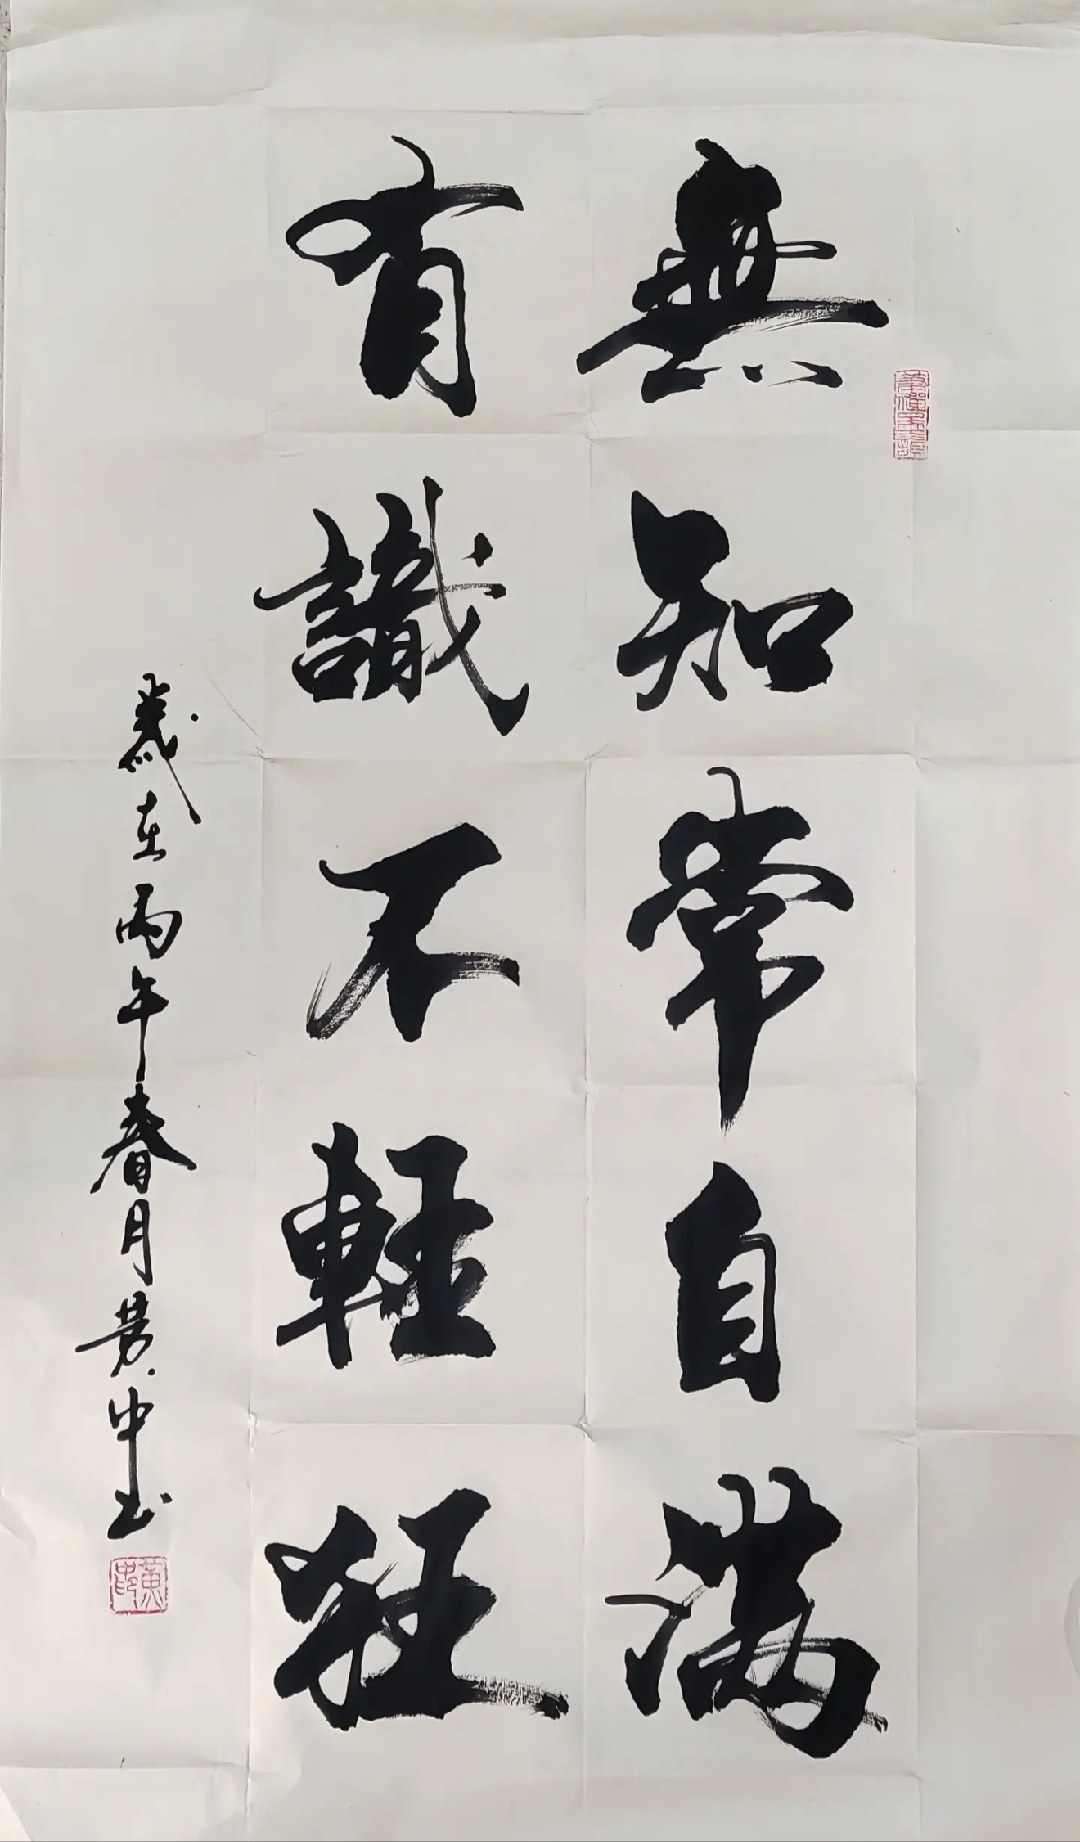 無知常自满
有識不輕狂
歲在丙午春月黄中书